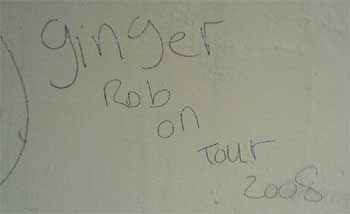 ginger
Rob
on
Tour
2008